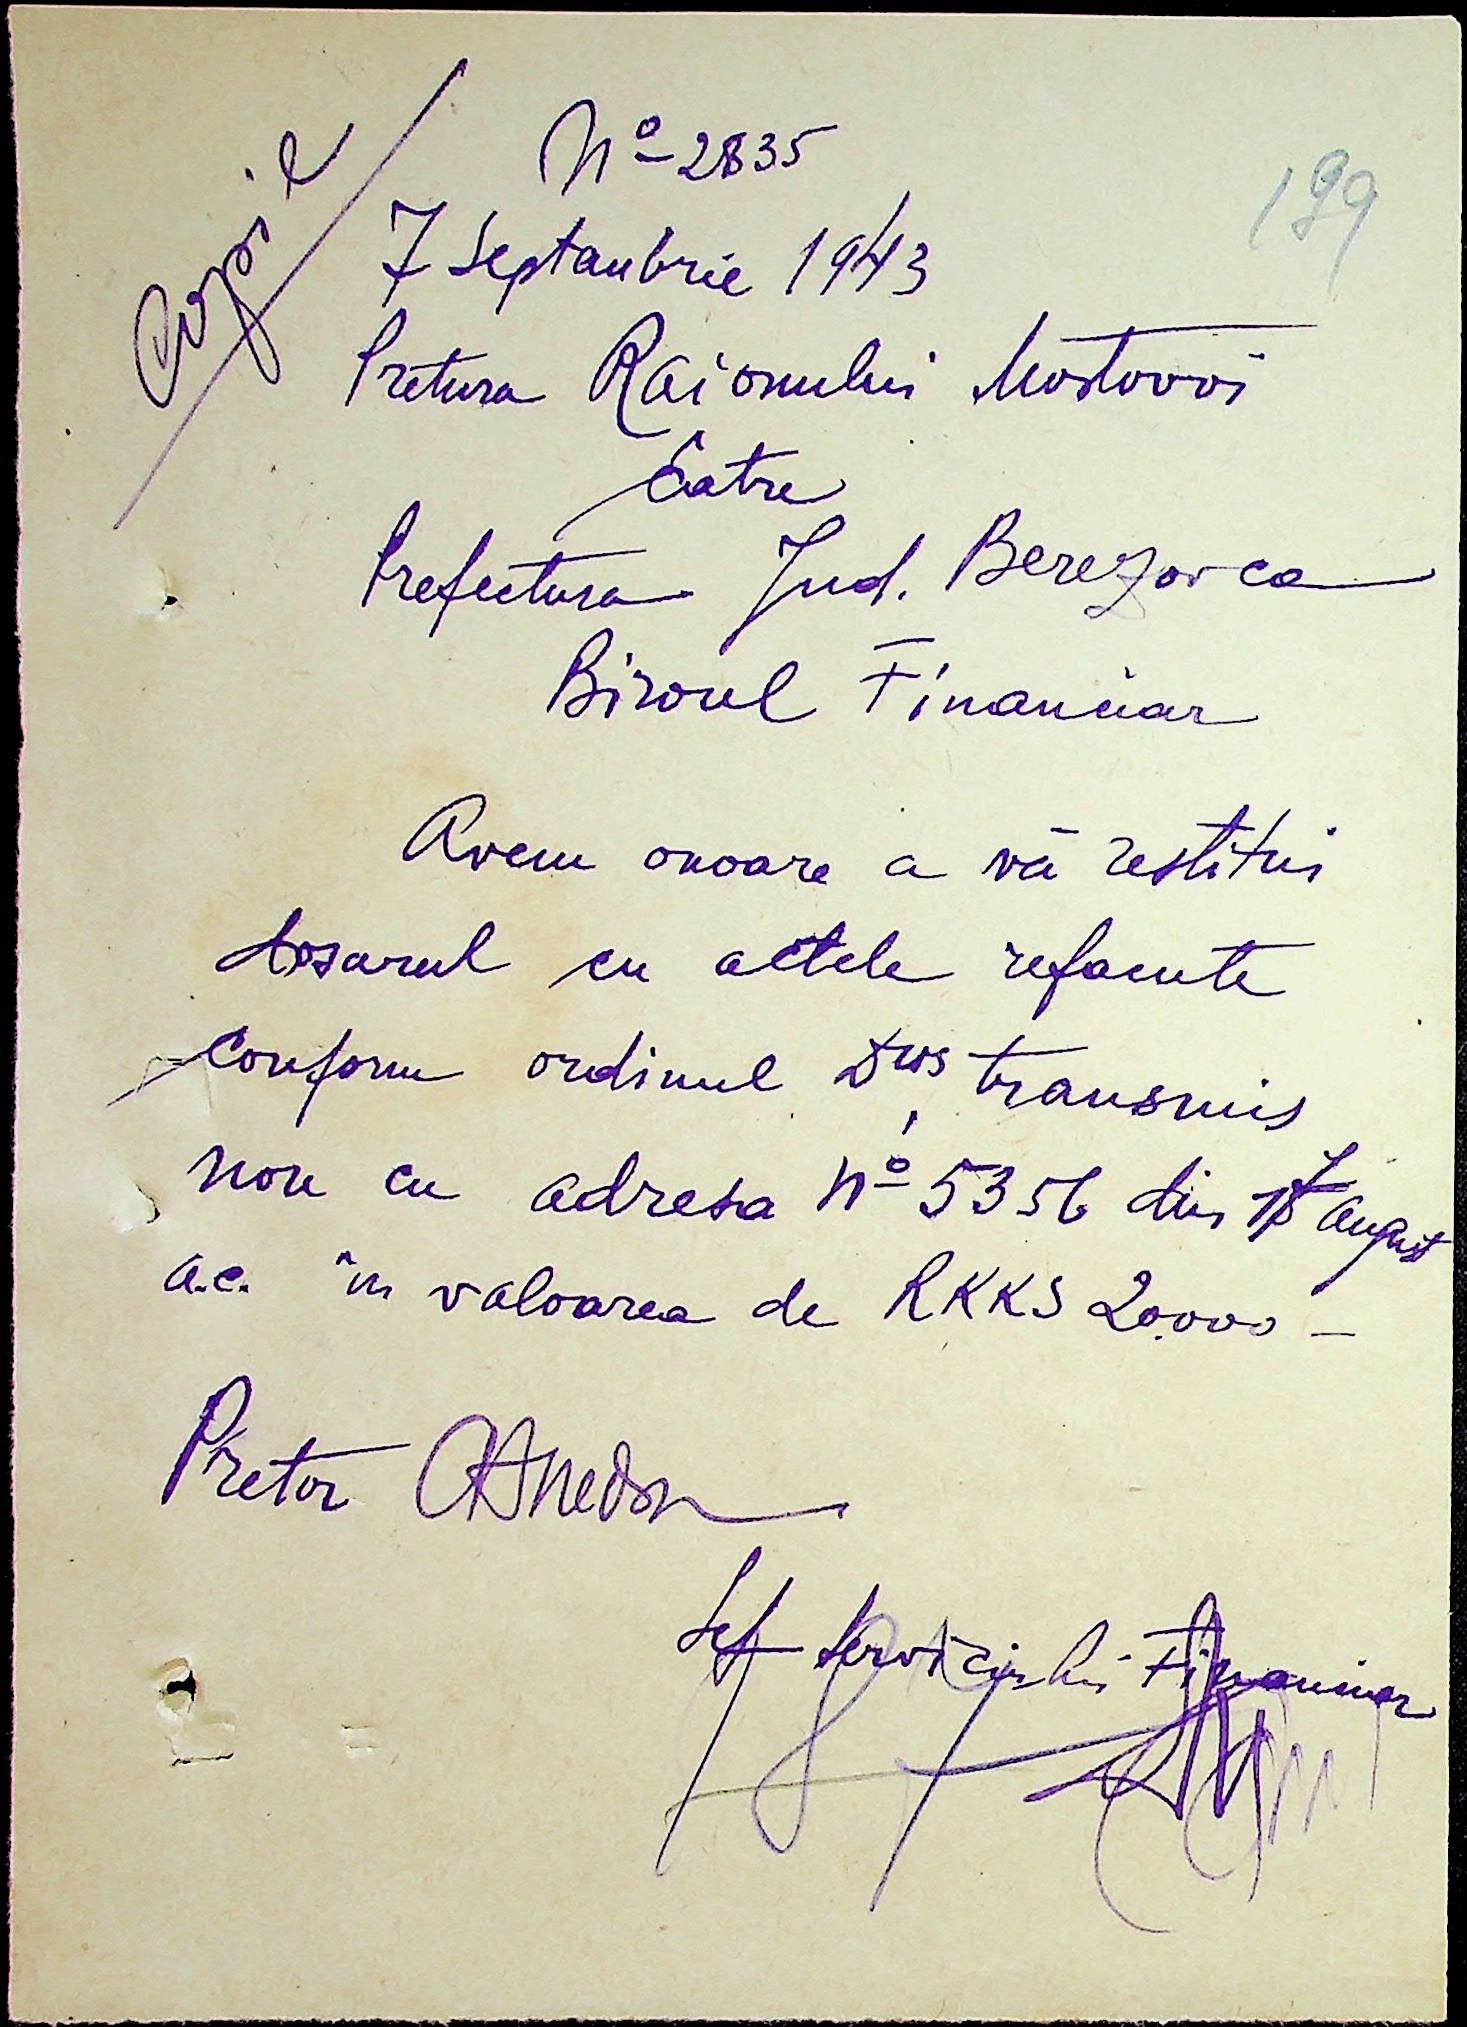 Copie
No 2835
199
7 Septembrie 1943
Pretura Raionului Mostovoi
Catre
Prefectura Jud. Berezovca
Biroul Financiar
Avem onoare a vă restitui
dosarul cu actele refacute
conform ordinul Dvs transmis
nou cu adresa No 5356 din 17 August
a.c. în valoarea de RKKS 20.000 –
Pretor
Sef Serviciului Financiar